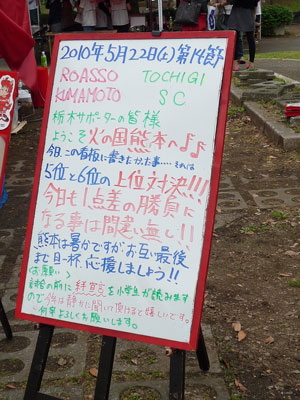 2010年5月22日(土)第14節
ROASSO TOCHIGI
KUMAMOTO SC
栃木サポーターの皆様
ようこそ火の国熊本へ♪♪
今日、この看板に書きたかった事…それは
5位と6位の上位対決!!!
今日も1点差の勝負に
なる事は間違い無し!!
熊本は暑かですが、お互い最後
まで目一杯、応援しましょう!!
(お願い)
試合の前に絆宣言を小学生が読みます
ので、
静かに聞いて頂けると嬉しいです。
何卒よろしくお願いします。